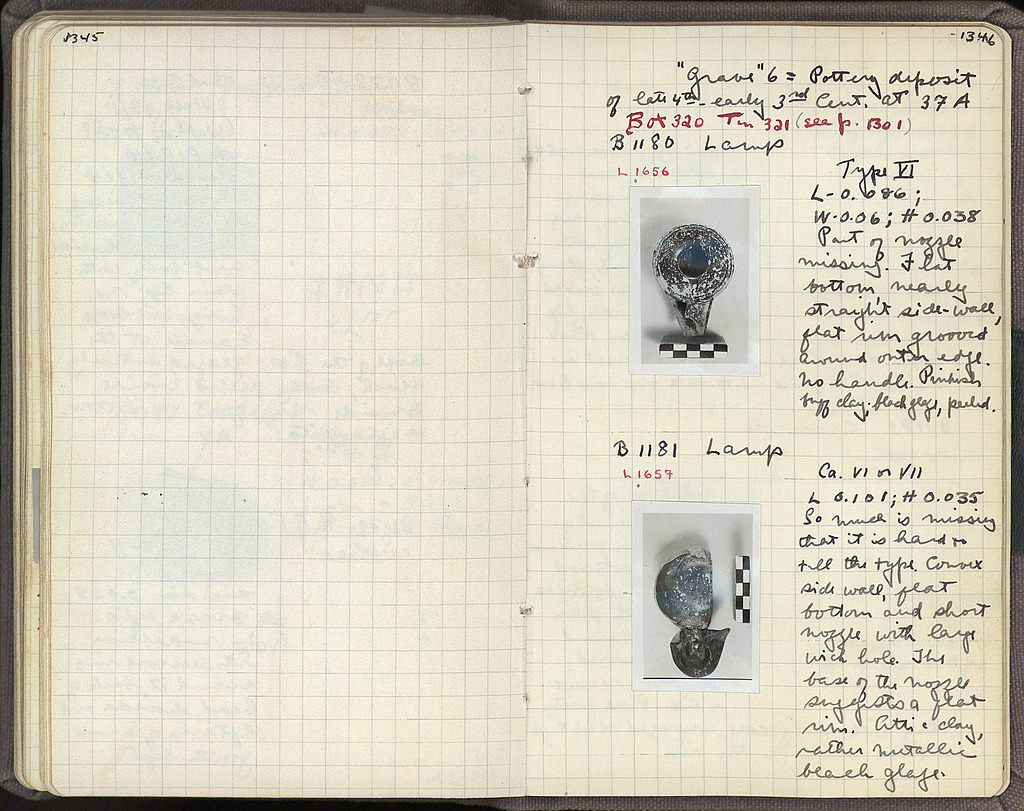 1345
1346
"Grave" 6 = Pottery deposit
of late 4th - early 3rd Cent. at 37 A
Bot 320 Tin 321 (see p. 1301)
B 1180 Lamp
L 1656
Type VI
L - 0.086;
W - 0.06; H 0.038
Part of nozzle
missing. Flat
bottom, nearly
straight side-wall,
flat rim grooved
around outer edge.
No handle. Pinkish
buff clay; black glaze, peeled.
B 1181 Lamp
L 1657
Ca. VI or VII
L 0.101; H 0.035
So much is missing
that it is hard to
tell the type. Convex
side wall, flat
bottom and short
nozzle with large
wick hole. The
base of the nozzle
suggests a flat
rim. Attic clay,
rather metallic
black glaze.